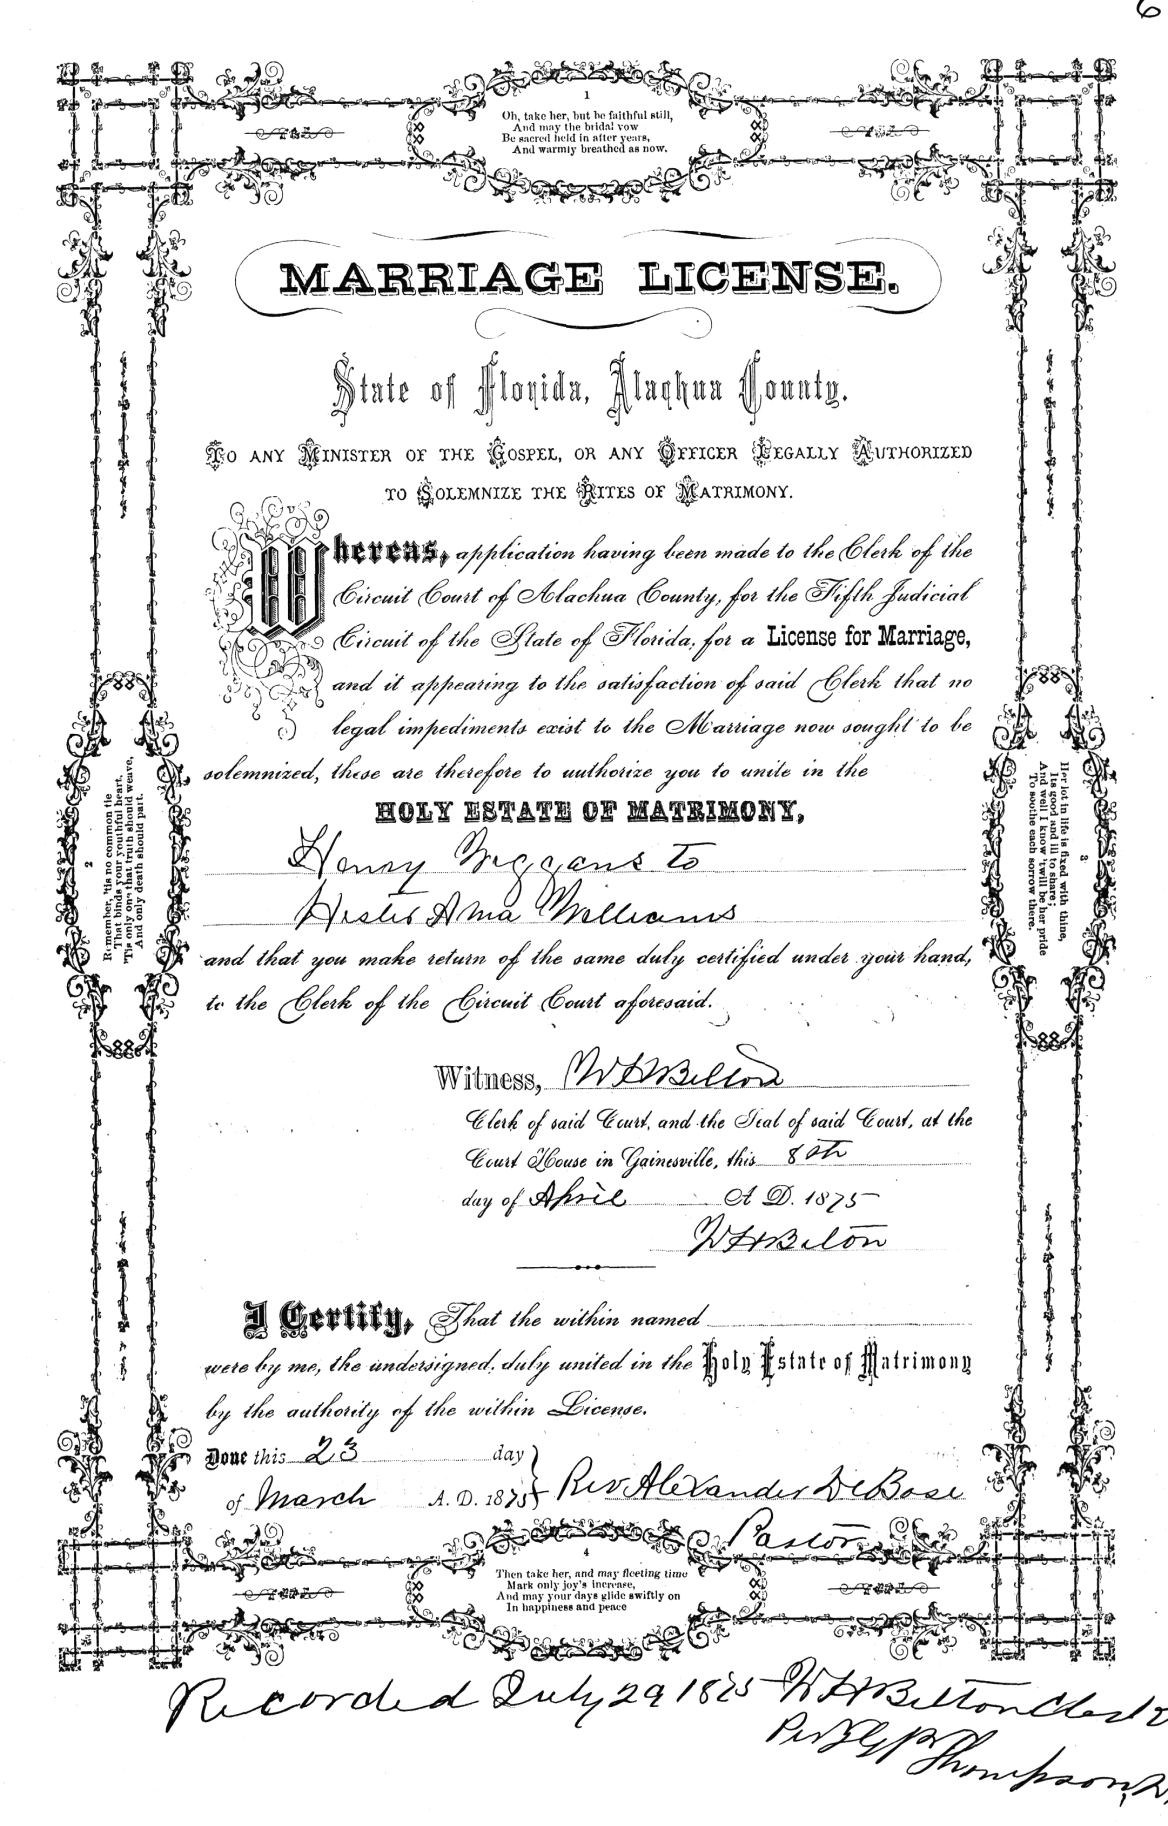 6
1
Oh, take her, but be faithful still,
And may the bridal vow
Be sacred held in after years,
And warmly breathed as now.
MARRIAGE LICENSE.
State of Florida, Alachua County.
TO ANY MINISTER OF THE GOSPEL, OR ANY OFFICER LEGALLY AUTHORIZED
TO SOLEMNIZE THE RITES OF MATRIMONY.
Whereas, application having been made to the Clerk of the
Circuit Court of Alachua County, for the Fifth Judicial
Circuit of the State of Florida, for a License for Marriage,
and it appearing to the satisfaction of said Clerk that no
legal impediments exist to the Marriage now sought to be
solemnized, these are therefore to authorize you to unite in the
HOLY ESTATE OF MATRIMONY,
Henry Wiggans to
Hester Ama Williams
and that you make return of the same duly certified under your hand,
to the Clerk of the Circuit Court aforesaid.
Witness, W H Belton
Clerk of said Court, and the Seal of said Court, at the
Court House in Gainesville, this 8th
day of April A. D. 1875
W H Belton
I Certify, That the within named
were by me, the undersigned, duly united in the Holy Estate of Matrimony
by the authority of the within License.
Done this 23 day
of March A. D. 1875 } Rev Alexander DeBose
Pastor
2
Remember, 'tis no common tie
That binds your youthful heart,
'Tis only one that truth should weave,
And only death should part.
3
Her lot in life is fixed with thine,
Its good and ill to share;
And well I know 'twill be her pride
To soothe each sorrow there.
4
Then take her, and may fleeting time
Mark only joy's increase,
And may your days glide swiftly on
In happiness and peace
Recorded July 29 1875 W H Belton Clerk
Per Thompson,